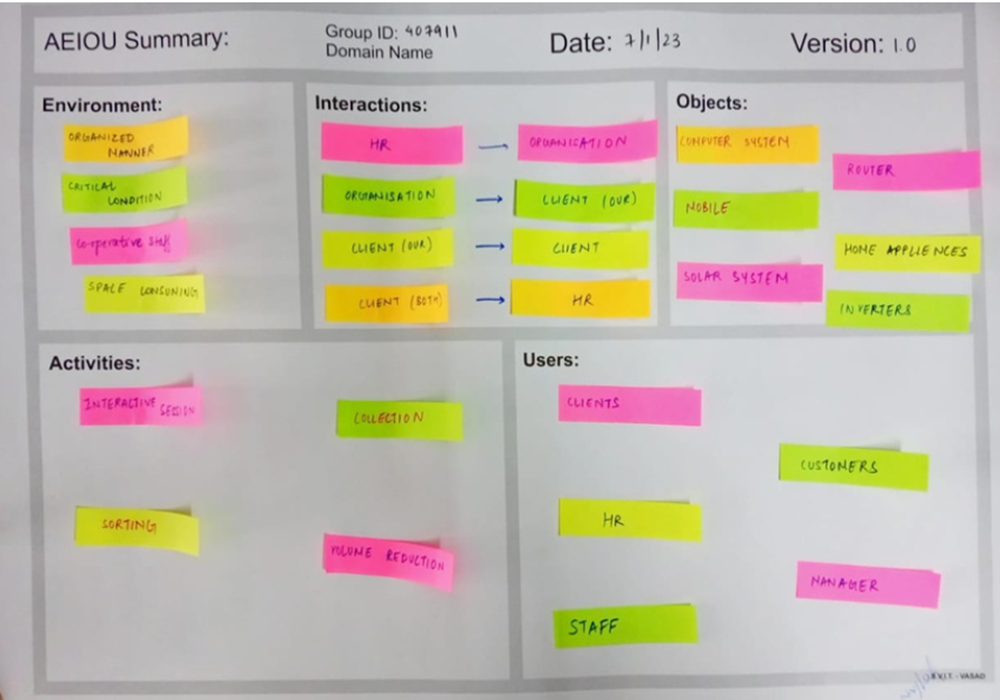 AEIOU Summary:
Group ID: 407911
Domain Name
Date: 7/1/23
Version: 1.0
Environment:
ORGANIZED
MANNER
CRITICAL
CONDITION
Co-operative Staff
SPACE CONSUMING
Interactions:
HR → ORGANISATION
ORGANISATION → CLIENT (OUR)
CLIENT (OUR) → CLIENT
CLIENT (BOTH) → HR
Objects:
COMPUTER SYSTEM
ROUTER
MOBILE
HOME APPLIENCES
SOLAR SYSTEM
INVERTERS
Activities:
INTERACTIVE
SESSION
COLLECTION
SORTING
VOLUME REDUCTION
Users:
CLIENTS
CUSTOMERS
HR
MANAGER
STAFF
- VASAD